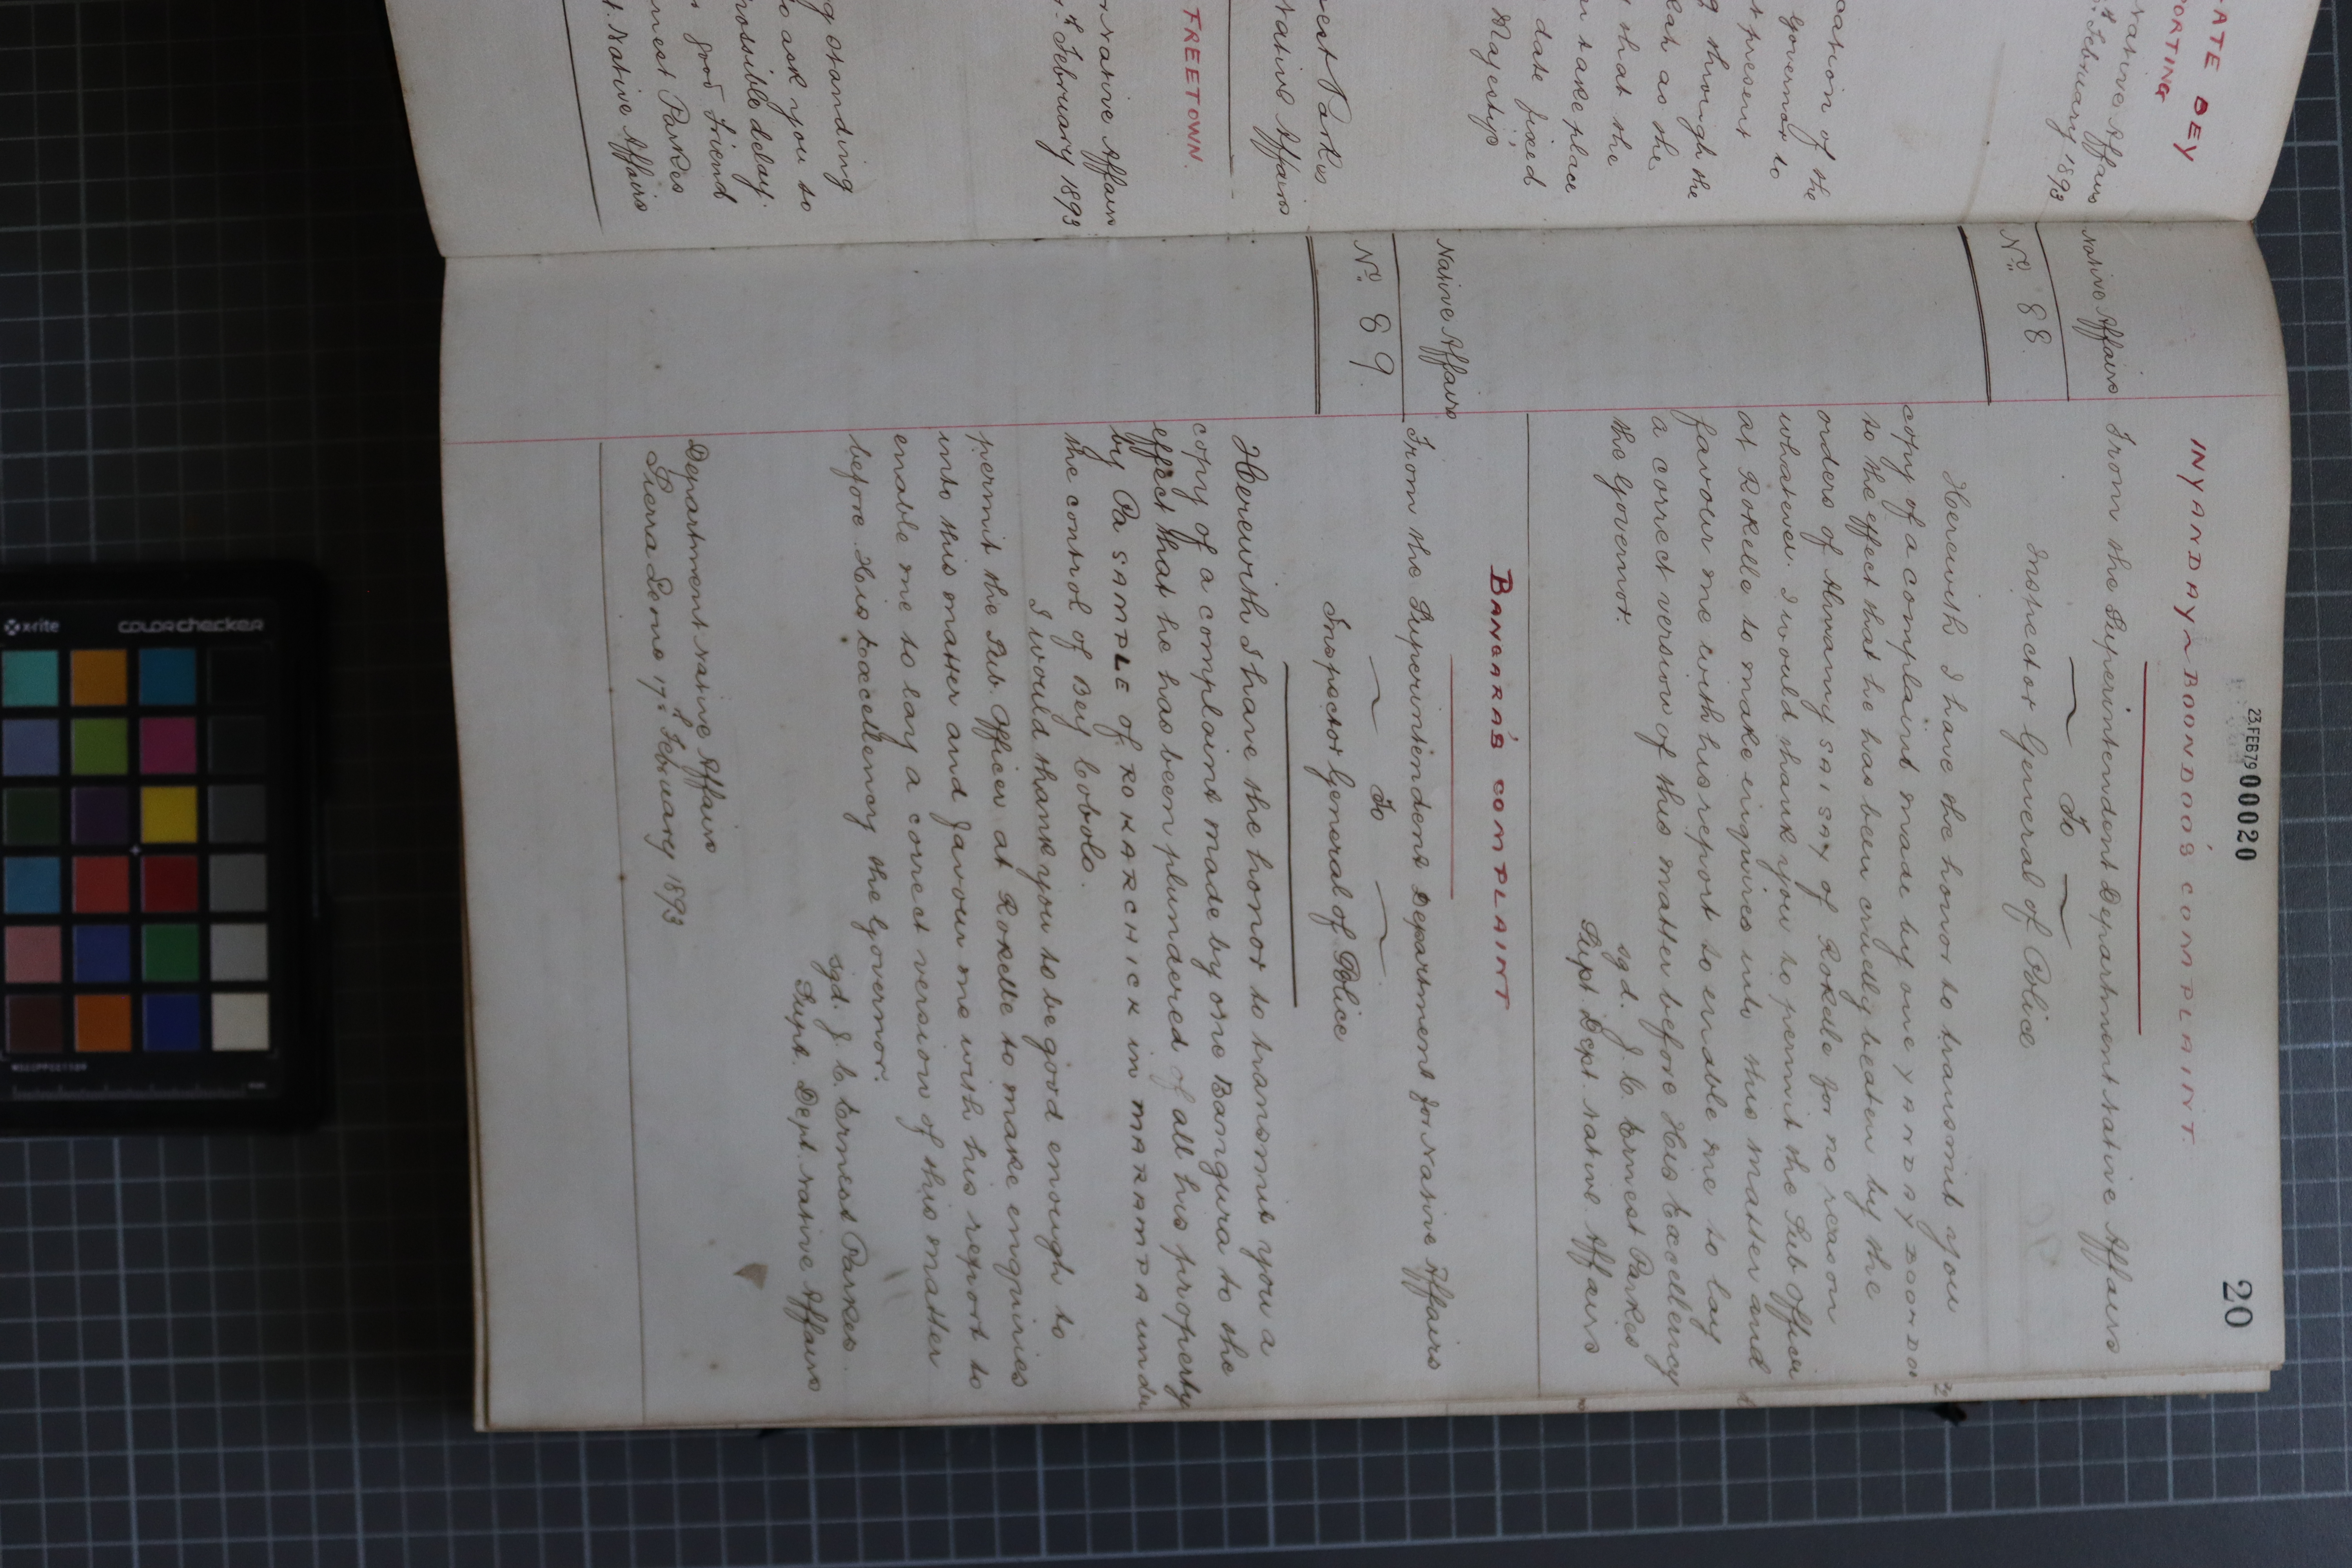 ATE BEY
PORTING
Native Affairs
February 1893
cation of the
Governor to
present
g through the
as the
that the
take place
date fixed
Majesty's
Parkes
Native Affairs
FREETOWN.
Native Affairs
February 1893
g standing
ask you to
possible delay.
good friend
rnest Parkes
Native Affairs
23 FEB 79 000020
20
INYANDAY BOONDOO'S COMPLAINT.
Native Affairs
No. 88.
From the Superintendent Department Native Affairs
To
Inspector General of Police
Herewith I have the honor to transmit you
copy of a complaint made by one YANDAY BOONDOO
to the effect that he has been cruelly beaten by the
orders of Almamy SAISAY of Rokelle for no reason
whatever. I would thank you to permit the Sub Officer
at Rokelle to make enquiries into this matter and
favour me with his report to enable me to lay
a correct version of this matter before His Excellency
the Governor.
sgd. J. C. Ernest Parkes
Supt. Dept. Native Affairs
BANGARA'S COMPLAINT
Native Affairs
No. 89.
From the Superintendent Department for Native Affairs
To
Inspector General of Police
Herewith I have the honor to transmit you a
copy of a complaint made by one Bangura to the
effect that he has been plundered of all his property
by Pa SAMPLE of ROKARCHICK in MARAMPA under
the control of Bey Cobolo.
I would thank you to be good enough to
permit the Sub. Officer at Rokelle to make enquiries
into this matter and favour me with his report to
enable me to lay a correct version of this matter
before His Excellency the Governor.
sgd. J. C. Ernest Parkes.
Supt. Dept. Native Affairs
Department Native Affairs
Sierra Leone 17th February 1893
x-rite
colorchecker